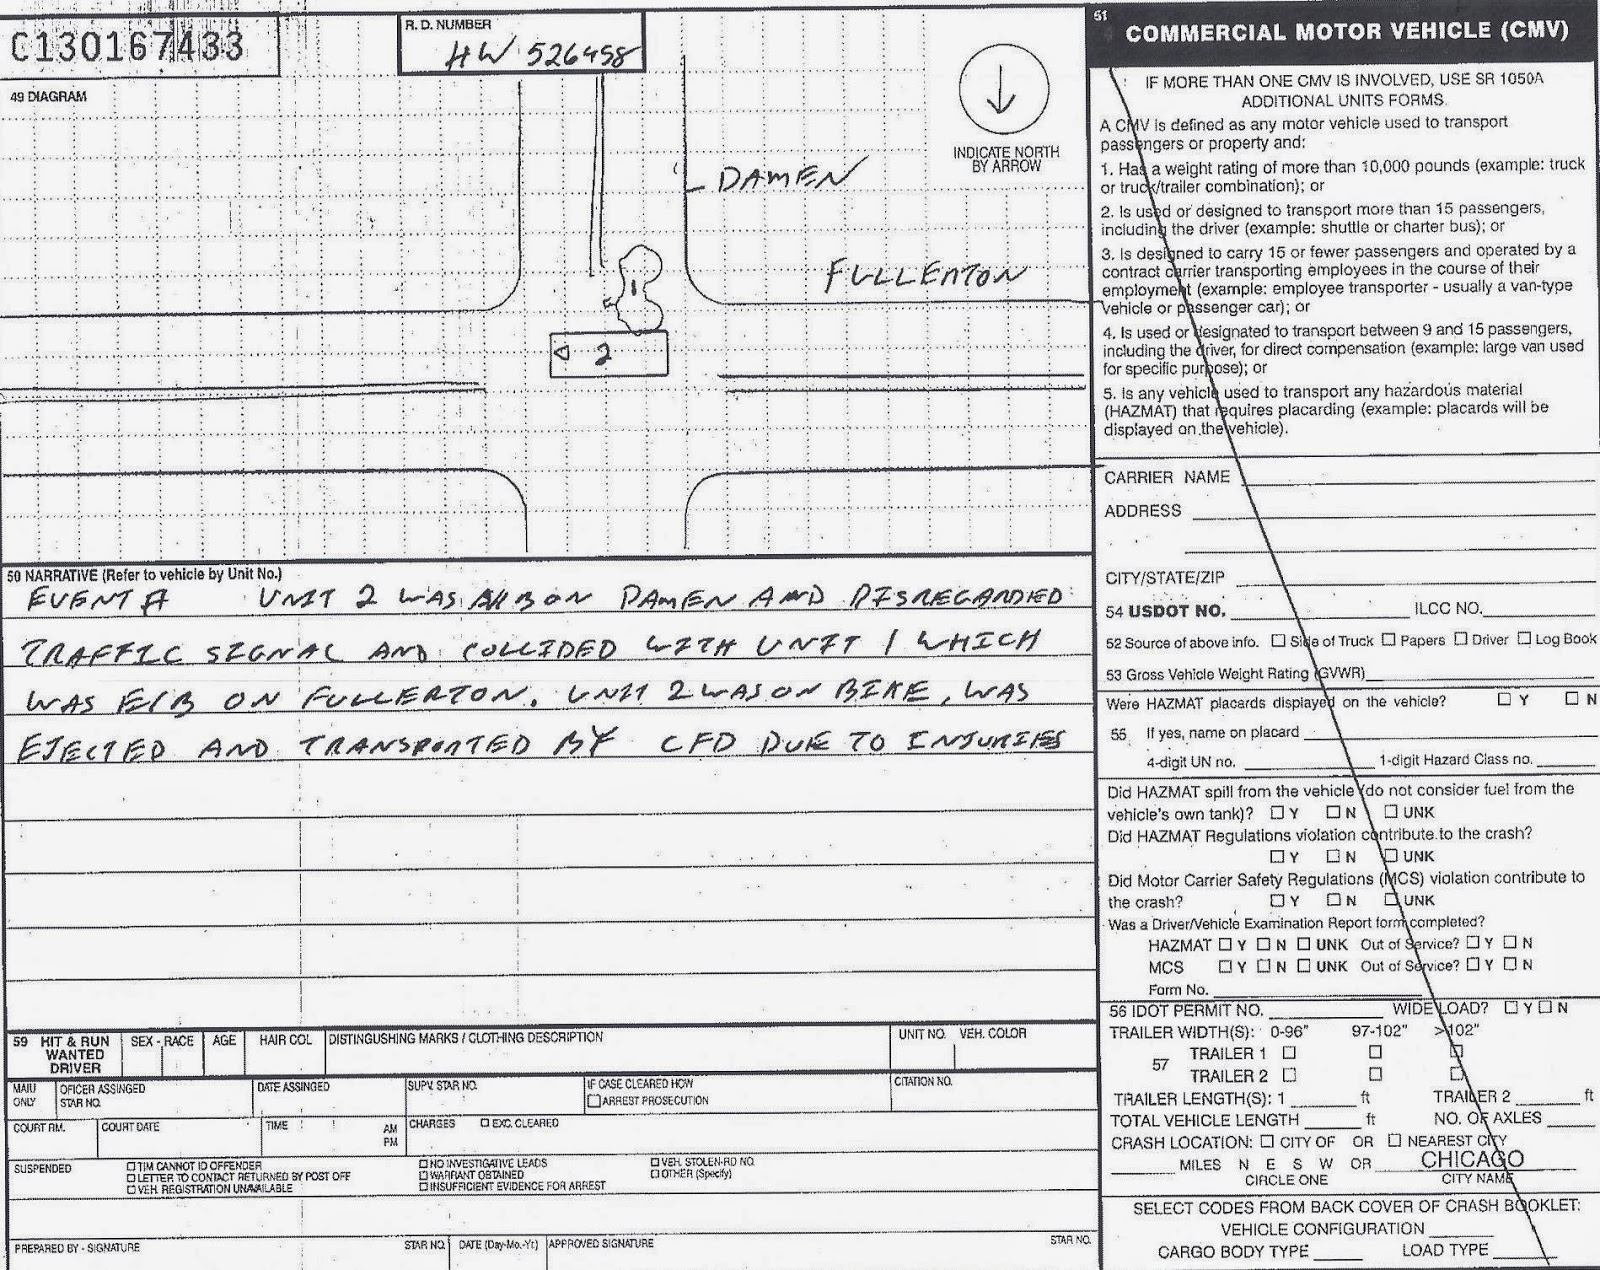 C130167433
R.D. NUMBER
HW 526458
49 DIAGRAM
INDICATE NORTH
BY ARROW
DAMEN
FULLERTON
1
2
50 NARRATIVE (Refer to vehicle by Unit No.)
EVENT # UNIT 2 WAS N/B ON DAMEN AND DISREGARDED
TRAFFIC SIGNAL AND COLLIDED WITH UNIT 1 WHICH
WAS E/B ON FULLERTON. UNIT 2 WAS ON BIKE, WAS
EJECTED AND TRANSPORTED BY CFD DUE TO INJURIES
59 HIT & RUN
WANTED
DRIVER
SEX - RACE
AGE
HAIR COL
DISTINGUSHING MARKS / CLOTHING DESCRIPTION
UNIT NO. VEH. COLOR
MAIU
ONLY
OFICER ASSINGED
STAR NO.
DATE ASSINGED
SUPV. STAR NO.
IF CASE CLEARED HOW
ARREST PROSECUTION
CITATION NO.
COURT RM.
COURT DATE
TIME
AM
PM
CHARGES EXC. CLEARED
SUSPENDED
TIM CANNOT ID OFFENDER
LETTER TO CONTACT RETURNED BY POST OFF
VEH. REGISTRATION UNAVAILABLE
NO INVESTIGATIVE LEADS
WARRANT OBTAINED
INSUFFICIENT EVIDENCE FOR ARREST
VEH. STOLEN-RD NO.
OTHER (Specify)
PREPARED BY - SIGNATURE
STAR NO.
DATE (Day-Mo.-Yr.)
APPROVED SIGNATURE
STAR NO.
51
COMMERCIAL MOTOR VEHICLE (CMV)
IF MORE THAN ONE CMV IS INVOLVED, USE SR 1050A
ADDITIONAL UNITS FORMS.
A CMV is defined as any motor vehicle used to transport
passengers or property and:
1. Has a weight rating of more than 10,000 pounds (example: truck
or truck/trailer combination); or
2. Is used or designed to transport more than 15 passengers,
including the driver (example: shuttle or charter bus); or
3. Is designed to carry 15 or fewer passengers and operated by a
contract carrier transporting employees in the course of their
employment (example: employee transporter - usually a van-type
vehicle or passenger car); or
4. Is used or designated to transport between 9 and 15 passengers,
including the driver, for direct compensation (example: large van used
for specific purpose); or
5. Is any vehicle used to transport any hazardous material
(HAZMAT) that requires placarding (example: placards will be
displayed on the vehicle).
CARRIER NAME
ADDRESS
CITY/STATE/ZIP
54 USDOT NO. ILCC NO.
52 Source of above info. Side of Truck Papers Driver Log Book
53 Gross Vehicle Weight Rating (GVWR)
Were HAZMAT placards displayed on the vehicle? Y N
55 If yes, name on placard
4-digit UN no. 1-digit Hazard Class no.
Did HAZMAT spill from the vehicle (do not consider fuel from the
vehicle's own tank)? Y N UNK
Did HAZMAT Regulations violation contribute to the crash?
Y N UNK
Did Motor Carrier Safety Regulations (MCS) violation contribute to
the crash? Y N UNK
Was a Driver/Vehicle Examination Report form completed?
HAZMAT Y N UNK Out of Service? Y N
MCS Y N UNK Out of Service? Y N
Form No.
56 IDOT PERMIT NO. WIDE LOAD? Y N
TRAILER WIDTH(S): 0-96" 97-102" >102"
57 TRAILER 1
TRAILER 2
TRAILER LENGTH(S): 1 ft TRAILER 2 ft
TOTAL VEHICLE LENGTH ft NO. OF AXLES
CRASH LOCATION: CITY OF OR NEAREST CITY
MILES N E S W OR CHICAGO
CIRCLE ONE CITY NAME
SELECT CODES FROM BACK COVER OF CRASH BOOKLET:
VEHICLE CONFIGURATION
CARGO BODY TYPE LOAD TYPE